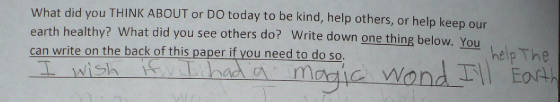 What did you THINK ABOUT or DO today to be kind, help others, or help keep our
earth healthy? What did you see others do? Write down one thing below. You
can write on the back of this paper if you need to do so.
I wish if I had a magic wond I'll help The Earth